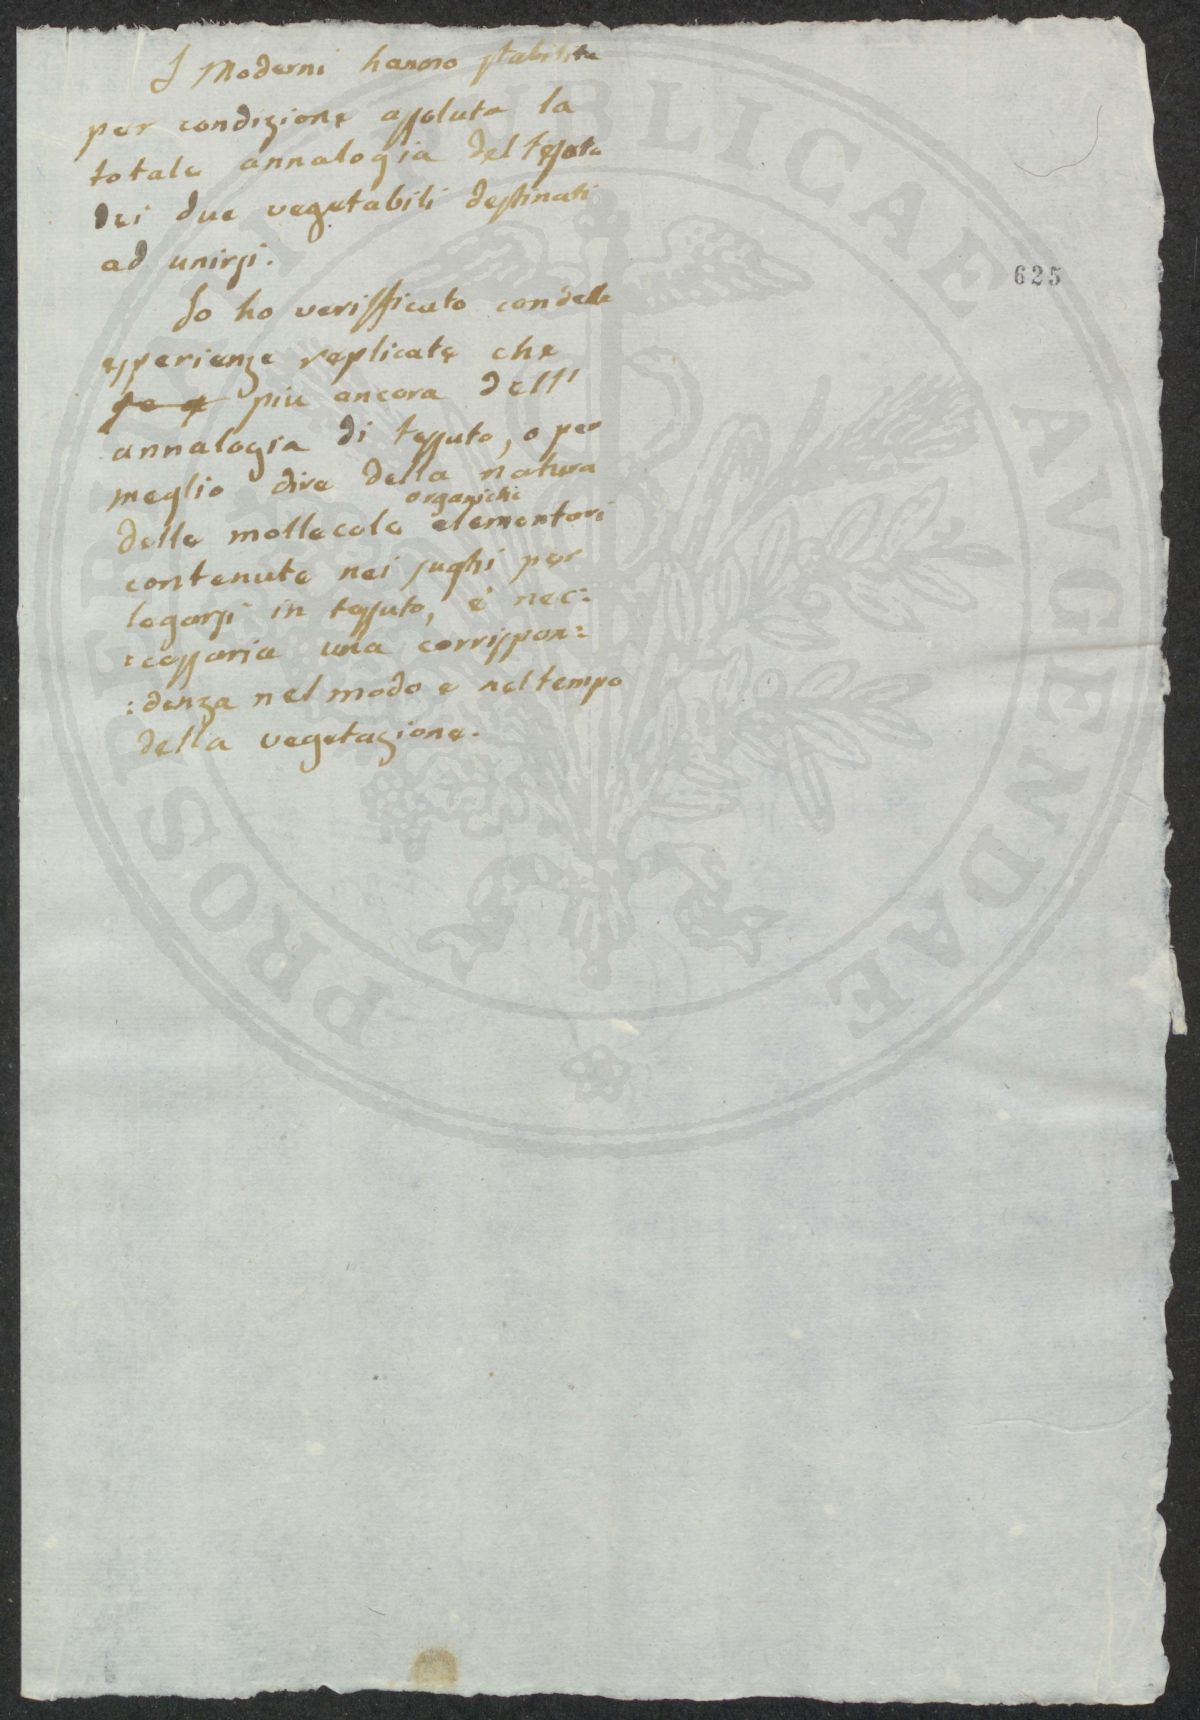 I Moderni hanno stabilito
per condizione assoluta la
totale annalogia del tessuto
dei due vegetabili destinati
ad unirsi.
625
Io ho verifficato con delle
esperienze replicate che
più ancora dell'
annalogia di tessuto, o per
meglio dire della natura
organiche
delle mollecole elementari
contenute nei sughi per
legarsi in tessuto, è nec:
:cessaria una corrispon:
:denza nel modo e nel tempo
della vegetazione.
PROSPERITATI PUBLICAE AVGENDAE